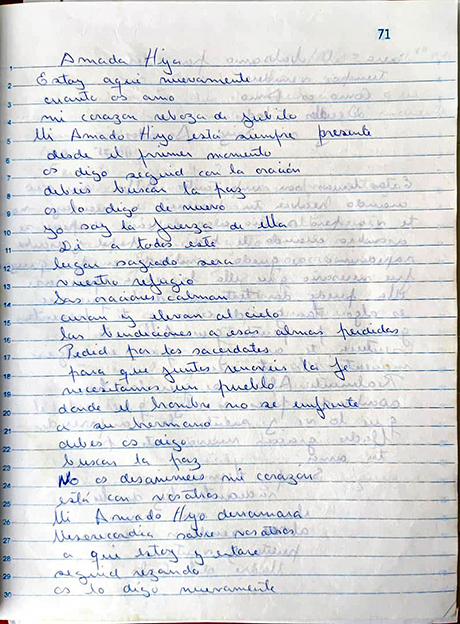 71
Amada Hija
Estoy aqui nuevamente
cuanto os amo
mi corazon reboza de jubilo
Mi Amado Hijo está siempre presente
desde el primer momento
os digo seguid con la oración
debeis buscar la paz
os lo digo de nuevo
yo soy la fuerza de ella
Di a todos este
lugar sagrado sera
vuestro refugio
Las oraciones calman
curan y elevan al cielo
las bendiciones a esas almas perdidas
Pedid por los sacerdotes
para que juntos renovéis la fe
necesitamos un pueblo
donde el hombre no se enfrente
a su hermano
debes os digo
buscar la paz
No os desanimeis mi corazón
está con vosotros
Mi Amado Hijo derramará
Misericordia sobre vosotros
a qui estoy y estare
seguid rezando
os lo digo nuevamente